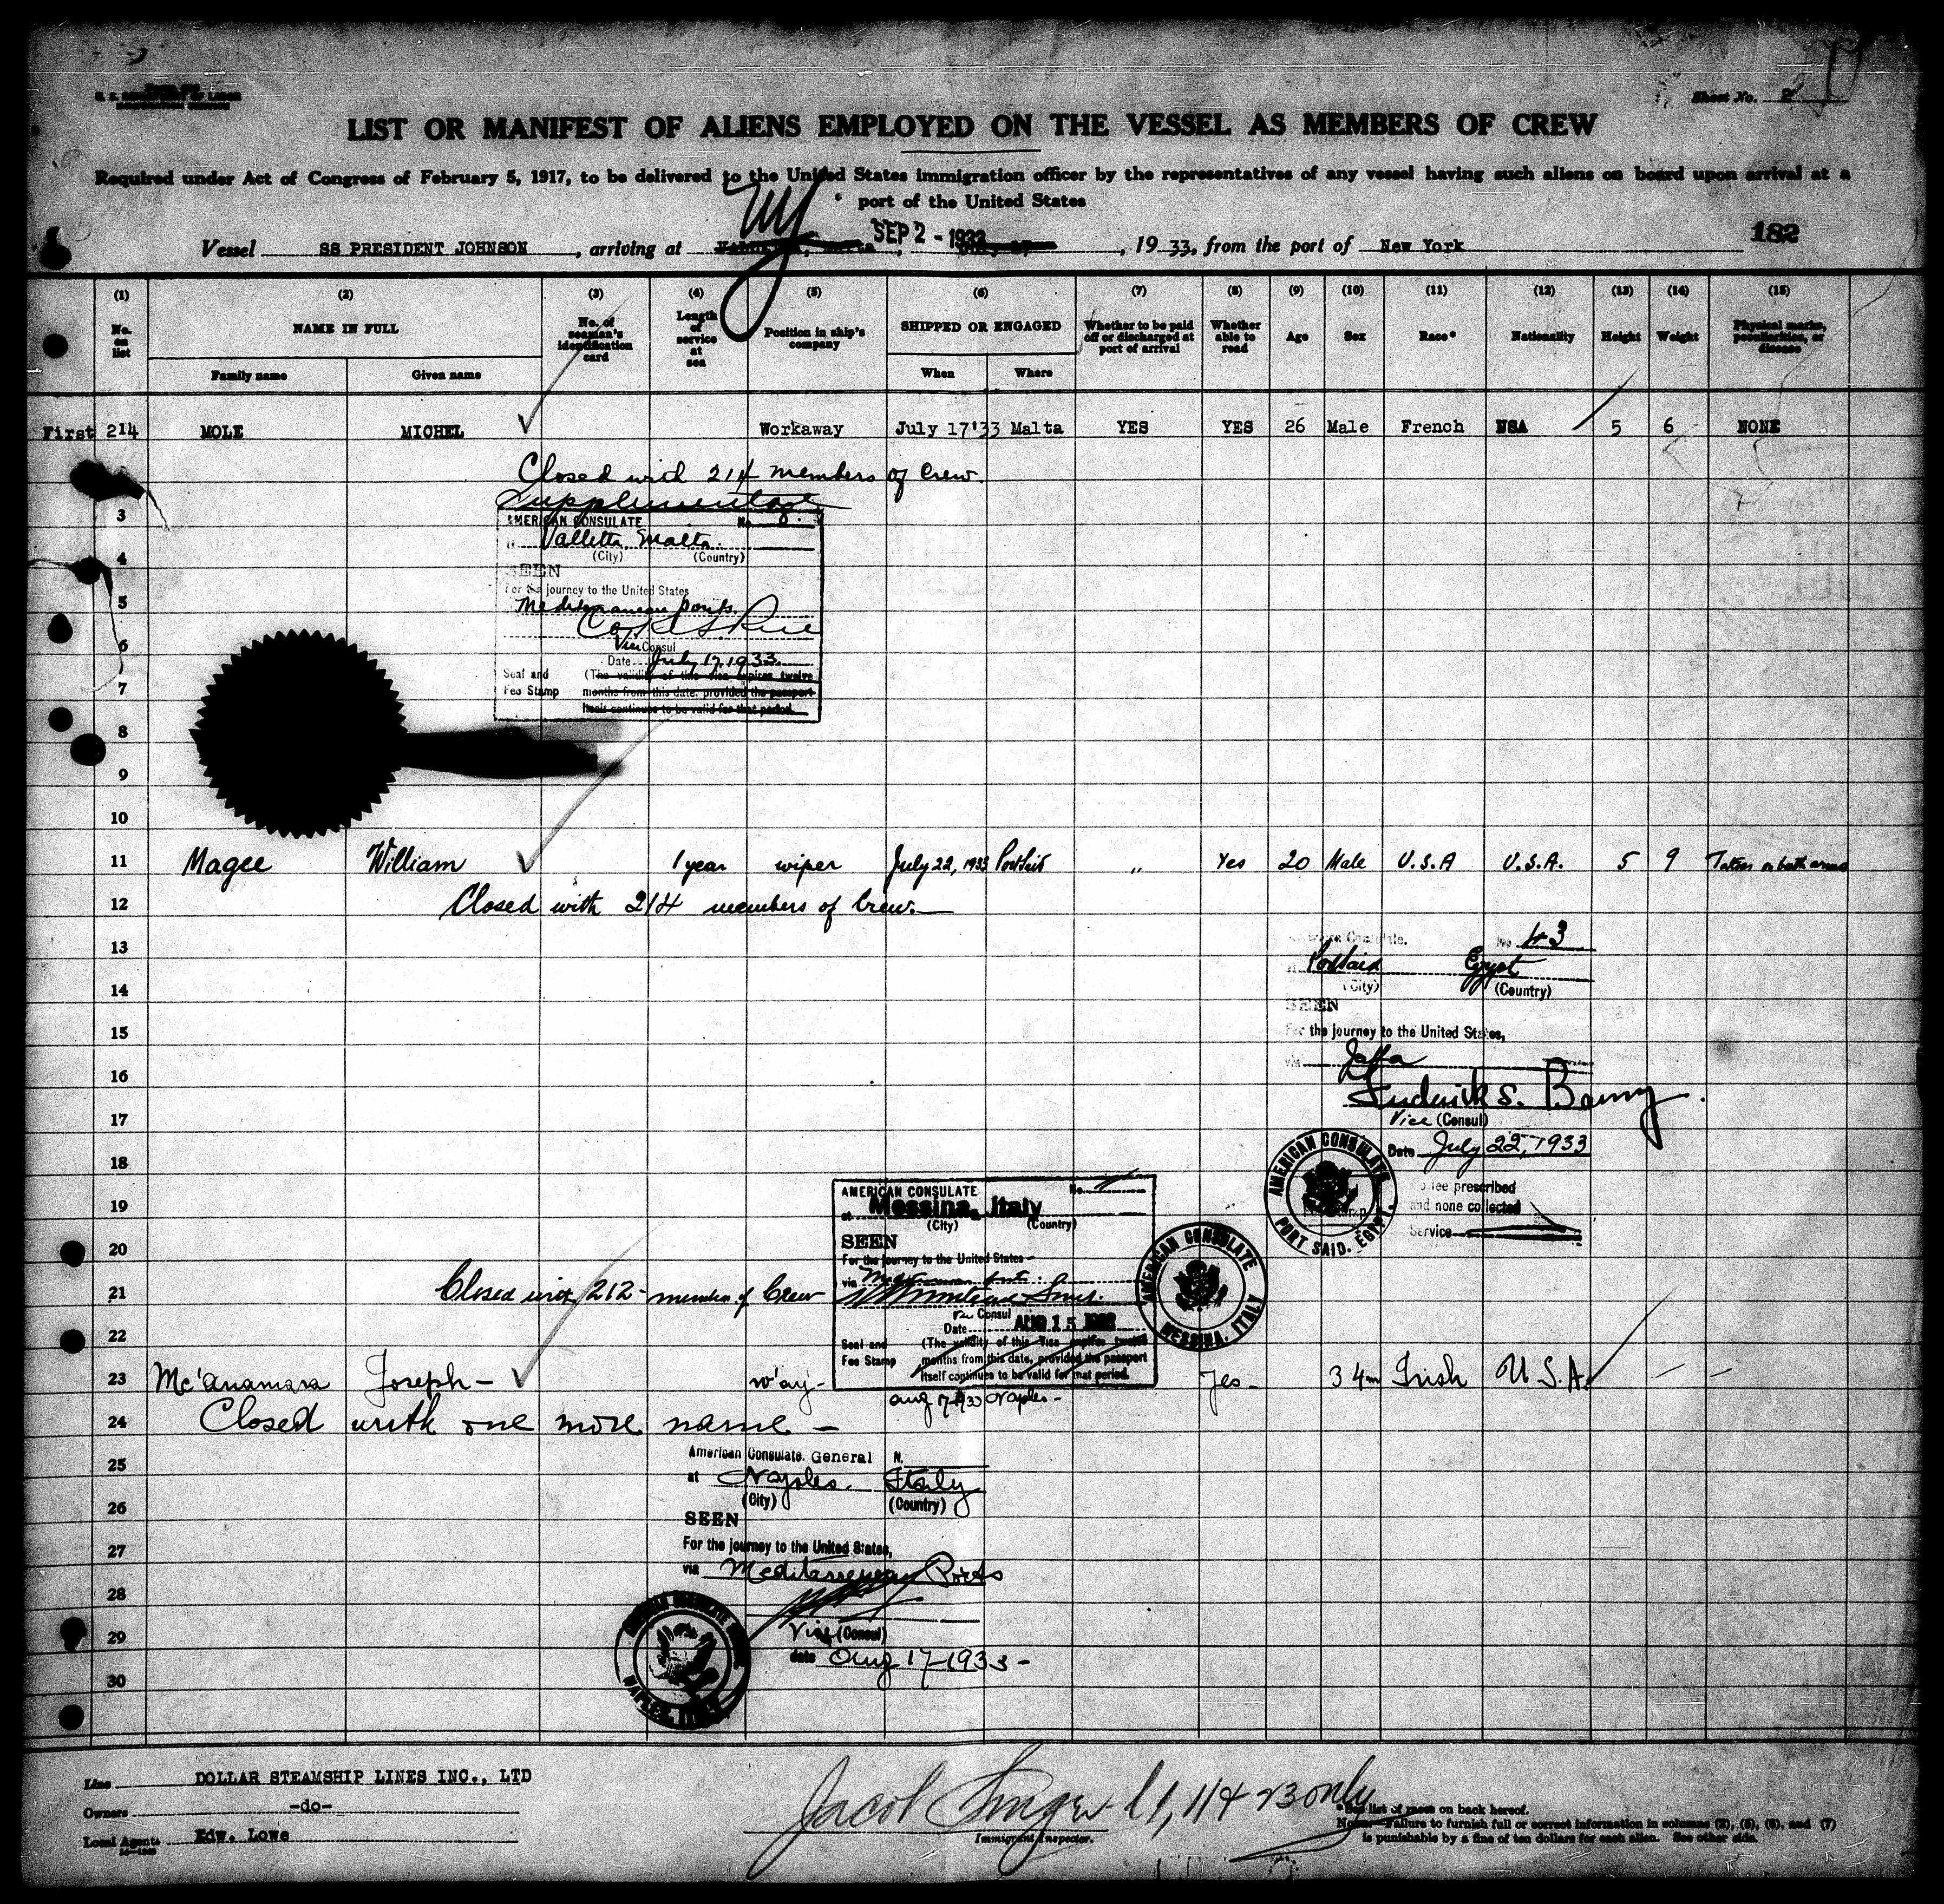 Sheet No. 2
LIST OR MANIFEST OF ALIENS EMPLOYED ON THE VESSEL AS MEMBERS OF CREW
Required under Act of Congress of February 5, 1917, to be delivered to the United States immigration officer by the representatives of any vessel having such aliens on board upon arrival at a
port of the United States
NY
Vessel SS PRESIDENT JOHNSON, arriving at SEP 2 - 1933, 1933, from the port of New York 182
(1) (2) (3) (4) (5) (6) (7) (8) (9) (10) (11) (12) (13) (14) (15)
No. on list NAME IN FULL No. of seaman's identification card Length of service at sea Position in ship's company SHIPPED OR ENGAGED Whether to be paid off or discharged at port of arrival Whether able to read Age Sex Race* Nationality Height Weight Physical marks, peculiarities, or disease
Family name Given name When Where
First 214 MOLE MICHEL Workaway July 17'33 Malta YES YES 26 Male French USA 5 6 NONE
Closed with 214 members of Crew.
Supplemental
3
AMERICAN CONSULATE No.
Valletta, Malta.
4
(City) (Country)
SEEN
For the journey to the United States
5
Mediterranean ports.
6
Vice Consul
Date July 17, 1933.
Seal and (The validity of this visa expires twelve
7
Fee Stamp months from this date, provided the passport
itself continues to be valid for that period.
8
9
10
11 Magee William 1 year wiper July 22, 1933 Port Said " Yes 20 Male U.S.A U.S.A. 5 9 Tatoo on both arms
12 Closed with 214 members of Crew.
13
Consulate. No 43
Port Said Egypt
14
(City) (Country)
SEEN
15
For the journey to the United States,
via Jaffa
16
Frederick S. Barny
17
Vice (Consul)
Date July 22, 1933
18
fee prescribed
and none collected
Service
AMERICAN CONSULATE
PORT SAID, EGYPT.
AMERICAN CONSULATE No.
19
at Messina, Italy
(City) (Country)
20
SEEN
For the journey to the United States
via
21 Closed with 212 - members of Crew
Consul
Date AUG 15 1933
22
Seal and (The validity of this visa expires twelve
Fee Stamp months from this date, provided the passport
itself continues to be valid for that period.
AMERICAN CONSULATE
MESSINA, ITALY
23 Mc'Anamara Joseph - w'ay - Aug 17-1933 Naples - Yes - 34 m Irish U.S.A. — —
24 Closed with one more name -
25
American Consulate General N.
at Naples. Italy
26
(City) (Country)
SEEN
27
For the journey to the United States,
via Mediterranean Ports
28
29
Vice (Consul)
date Aug 17-1933 -
30
NAPLES, ITALY
Line DOLLAR STEAMSHIP LINES INC., LTD
Owners -do-
Local Agents Edw. Lowe
Jacob 11, 114 23 only
Immigrant Inspector.
*See list of races on back hereof.
Note.—Failure to furnish full or correct information in columns (2), (5), (6), and (7)
is punishable by a fine of ten dollars for each alien. See other side.